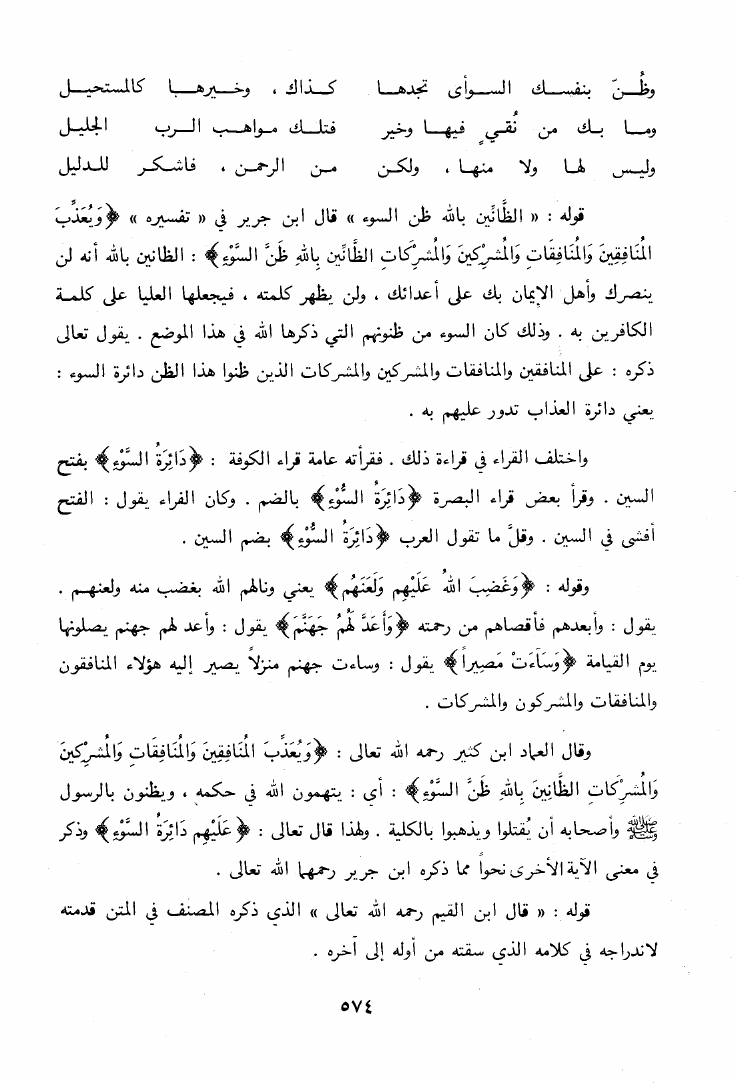 وظُــنّ بنفســك الســوأى تجدهــا كــذاك ، وخــيرهــا كالمستحيــل
ومــا بــك من نُقــيٍ فيهــا وخير فتلــك مواهــب الــرب الجليــل
وليــس لهــا ولا منهــا ، ولكــن مــن الرحمــن ، فاشكــر للــدليل
قوله : « الظَّانِّين بالله ظن السوء » قال ابن جرير في « تفسيره » ﴿وَيُعَذِّبَ
المُنَافِقِينَ وَالمُنَافِقَاتِ وَالمُشرِكِينَ وَالمُشرِكَاتِ الظَّانِّينَ بِاللهِ ظَنَّ السَّوْءِ﴾ : الظانين بالله أنه لن
ينصرك وأهل الإيمان بك على أعدائك ، ولن يظهر كلمته ، فيجعلها العليا على كلمة
الكافرين به . وذلك كان السوء من ظنونهم التي ذكرها الله في هذا الموضع . يقول تعالى
ذكره : على المنافقين والمنافقات والمشركين والمشركات الذين ظنوا هذا الظن دائرة السوء :
يعني دائرة العذاب تدور عليهم به .
واختلف القراء في قراءة ذلك . فقرأته عامة قراء الكوفة : ﴿دَائِرَةُ السَّوْءِ﴾ بفتح
السين . وقرأ بعض قراء البصرة ﴿دَائِرَةُ السُّوْءِ﴾ بالضم . وكان الفراء يقول : الفتح
أفشى في السين . وقلَّ ما تقول العرب ﴿دَائِرَةُ السُّوْءِ﴾ بضم السين .
وقوله : ﴿وَغَضِبَ اللهُ عَلَيْهِم وَلَعَنَهُم﴾ يعني ونالهم الله بغضب منه ولعنهــم .
يقول : وأبعدهم فأقصاهم من رحمته ﴿وَأَعَدَّ لَهُمُ جَهَنَّمَ﴾ يقول : وأعد لهم جهنم يصلونها
يوم القيامة ﴿وَسَآءَتْ مَصِيراً﴾ يقول : وساءت جهنم منزلاً يصير إليه هؤلاء المنافقون
والمنافقات والمشركون والمشركات .
وقال العماد ابن كثير رحمه الله تعالى : ﴿وَيُعَذِّبَ المُنَافِقِينَ وَالمُنَافِقَاتِ وَالمُشرِكِينَ
وَالمُشرِكَاتِ الظَّانِّينَ بِاللهِ ظَنَّ السَّوْءِ﴾ : أي : يتهمون الله في حكمه ، ويظنون بالرسول
ﷺ وأصحابه أن يُقتلوا ويذهبوا بالكلية . ولهذا قال تعالى : ﴿عَلَيْهِم دَائِرَةُ السَّوْءِ﴾ وذكر
في معنى الآية الأخرى نحواً مما ذكره ابن جرير رحمهما الله تعالى .
قوله : « قال ابن القيم رحمه الله تعالى » الذي ذكره المصنف في المتن قدمته
لاندراجه في كلامه الذي سقته من أوله إلى آخره .
٥٧٤